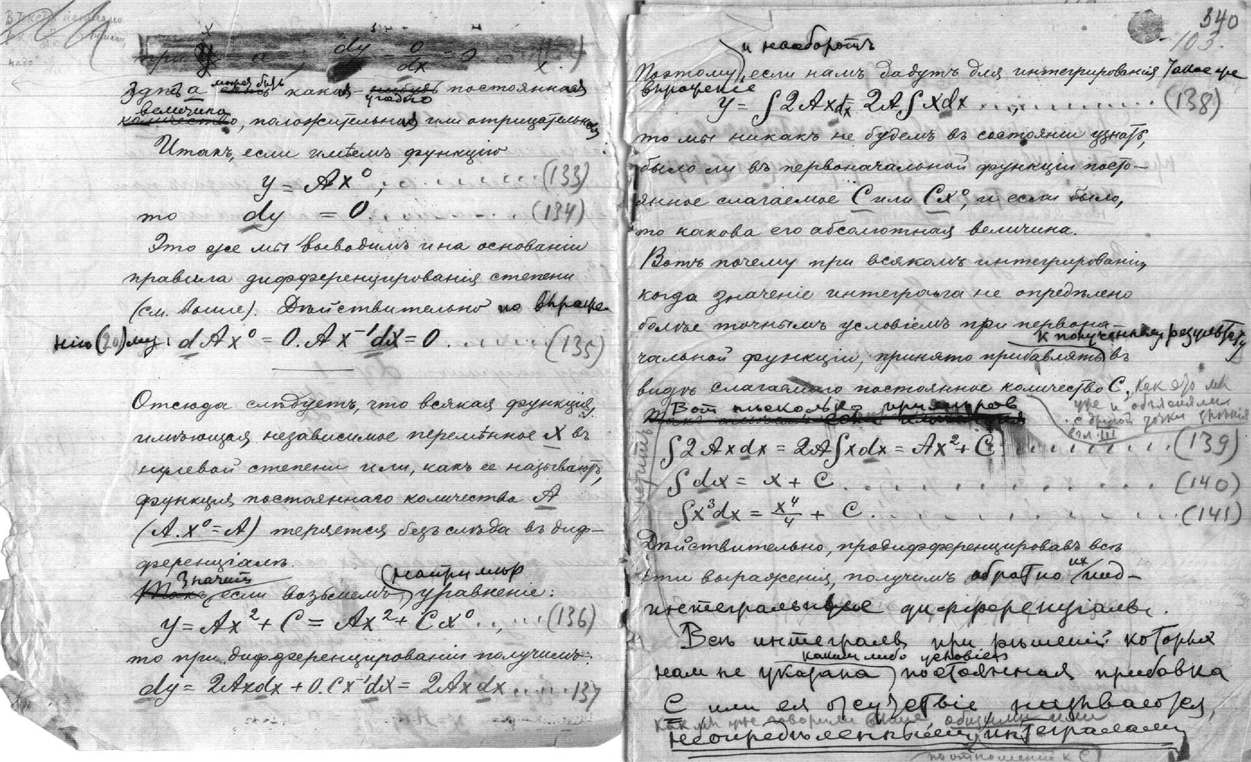 Здѣсь а можетъ быть какая постоянная
величина, положительная или отрицательная
Итакъ, если имѣемъ функцію
y = Ax⁰, . . . . . . . (133)
то dy = 0. . . . . . . (134)
Это же мы выводимъ и на основаніи
правила дифференцированія степени
(см. выше). Дѣйствительно по выраже
нію (20)му: dAx⁰ = 0.Ax⁻¹dx = 0 . . . . . (135)
Отсюда слѣдуетъ, что всякая функція,
имѣющая независимое перемѣнное x въ
нулевой степени или, какъ ее называютъ,
функція постояннаго количества A
(A.x⁰ = A) теряется безъ слѣда въ диф-
ференціалѣ.
Значит (например
если возьмемъ уравненіе:
y = Ax² + C = Ax² + Cx⁰ . . . . (136)
то при дифференцированіи получимъ:
dy = 2Axdx + 0.Cx⁻¹dx = 2Axdx . . . . 137
340
103.
и наоборотъ
Поэтому, если намъ дадутъ для интегрированія такое
выраженіе
y = ∫2Axdx 2A∫xdx . . . . . . (138)
то мы никакъ не будемъ въ состояніи узнать,
было ли въ первоначальной функціи посто-
янное слагаемое C или Cx⁰, и если было,
то какова его абсолютная величина.
Вотъ почему при всякомъ интегрированіи,
когда значеніе интеграла не опредѣлено
болѣе точнымъ условіемъ при первона-
к полученному результату
чальной функціи, принято прибавлять въ
видѣ слагаемаго постоянное количество C, как это мы
уже и объясняли
с другой точки зрѣния
Вот несколько примѣров
∫2Axdx = 2A∫xdx = Ax² + C . . . . . . (139)
∫dx = x + C . . . . . . . (140)
∫x³dx = x⁴/4 + C . . . . . . . (141)
Дѣйствительно, продифференцировавъ всѣ
эти выраженія, получимъ обратно их под-
интегральные дифференціалы.
Всѣ интегралы, при рѣшеніи которых
каким либо условіем
нам не указана постоянная прибавка
C или ея отсутствіе называются,
как мы уже говорили выше общими или
неопредѣленными интегралами
по отношенію к C)